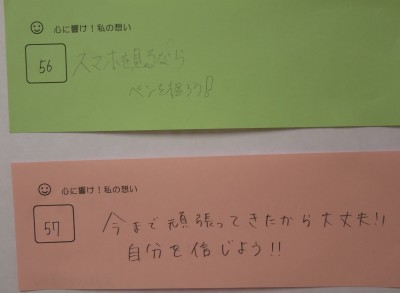 心に響け!私の想い
56
スマホを見るなら
ペンを握ろう!
心に響け!私の想い
57
今まで頑張ってきたから大丈夫!!
自分を信じよう!!